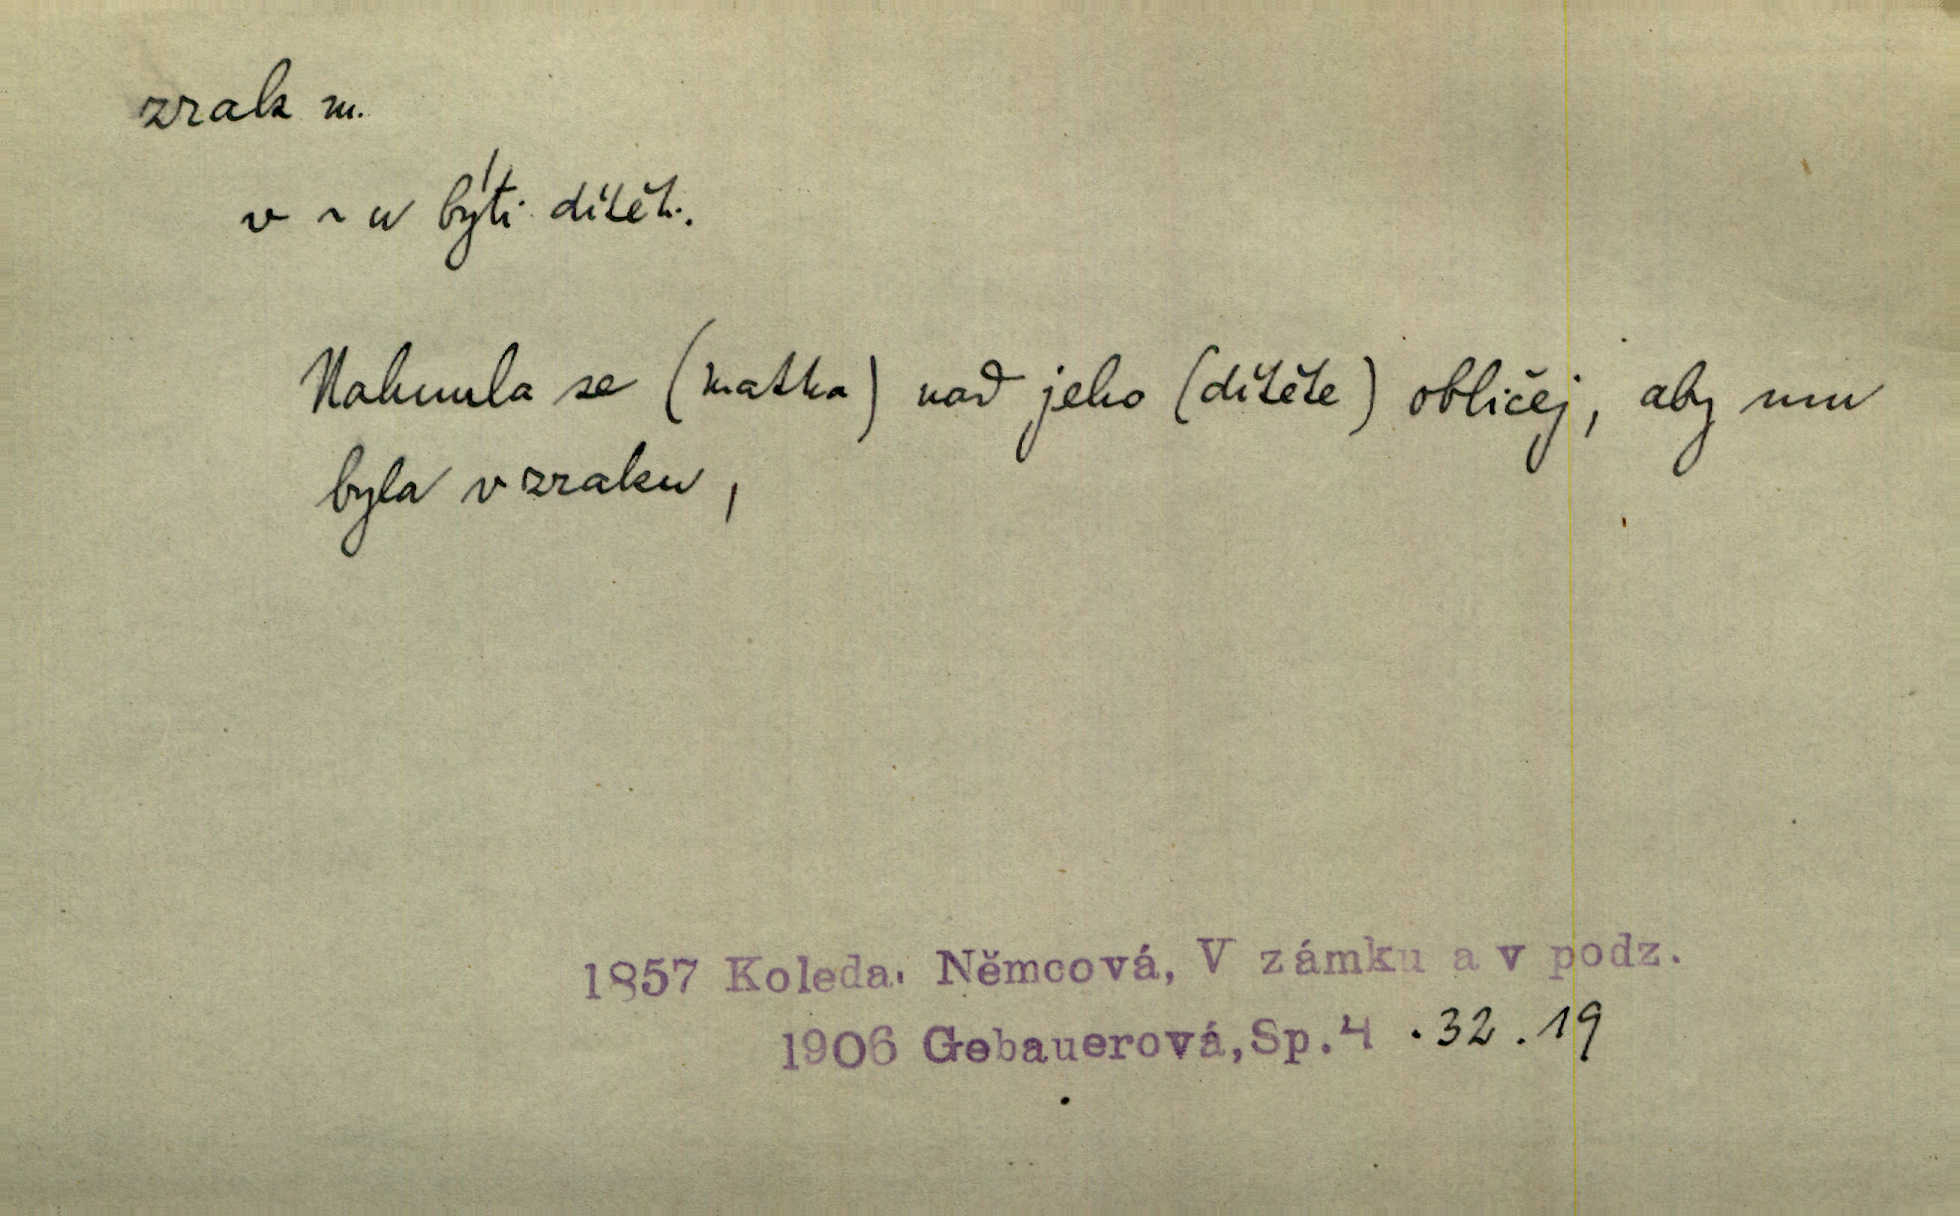 zrak m.
v ~u býti dítěti.
Nahnula se (matka) nad jeho (dítěte) obličej, aby mu
byla v zraku,
1857 Koleda. Němcová, V zámku a v podz.
1906 Gebauerová, Sp.4 .32.19